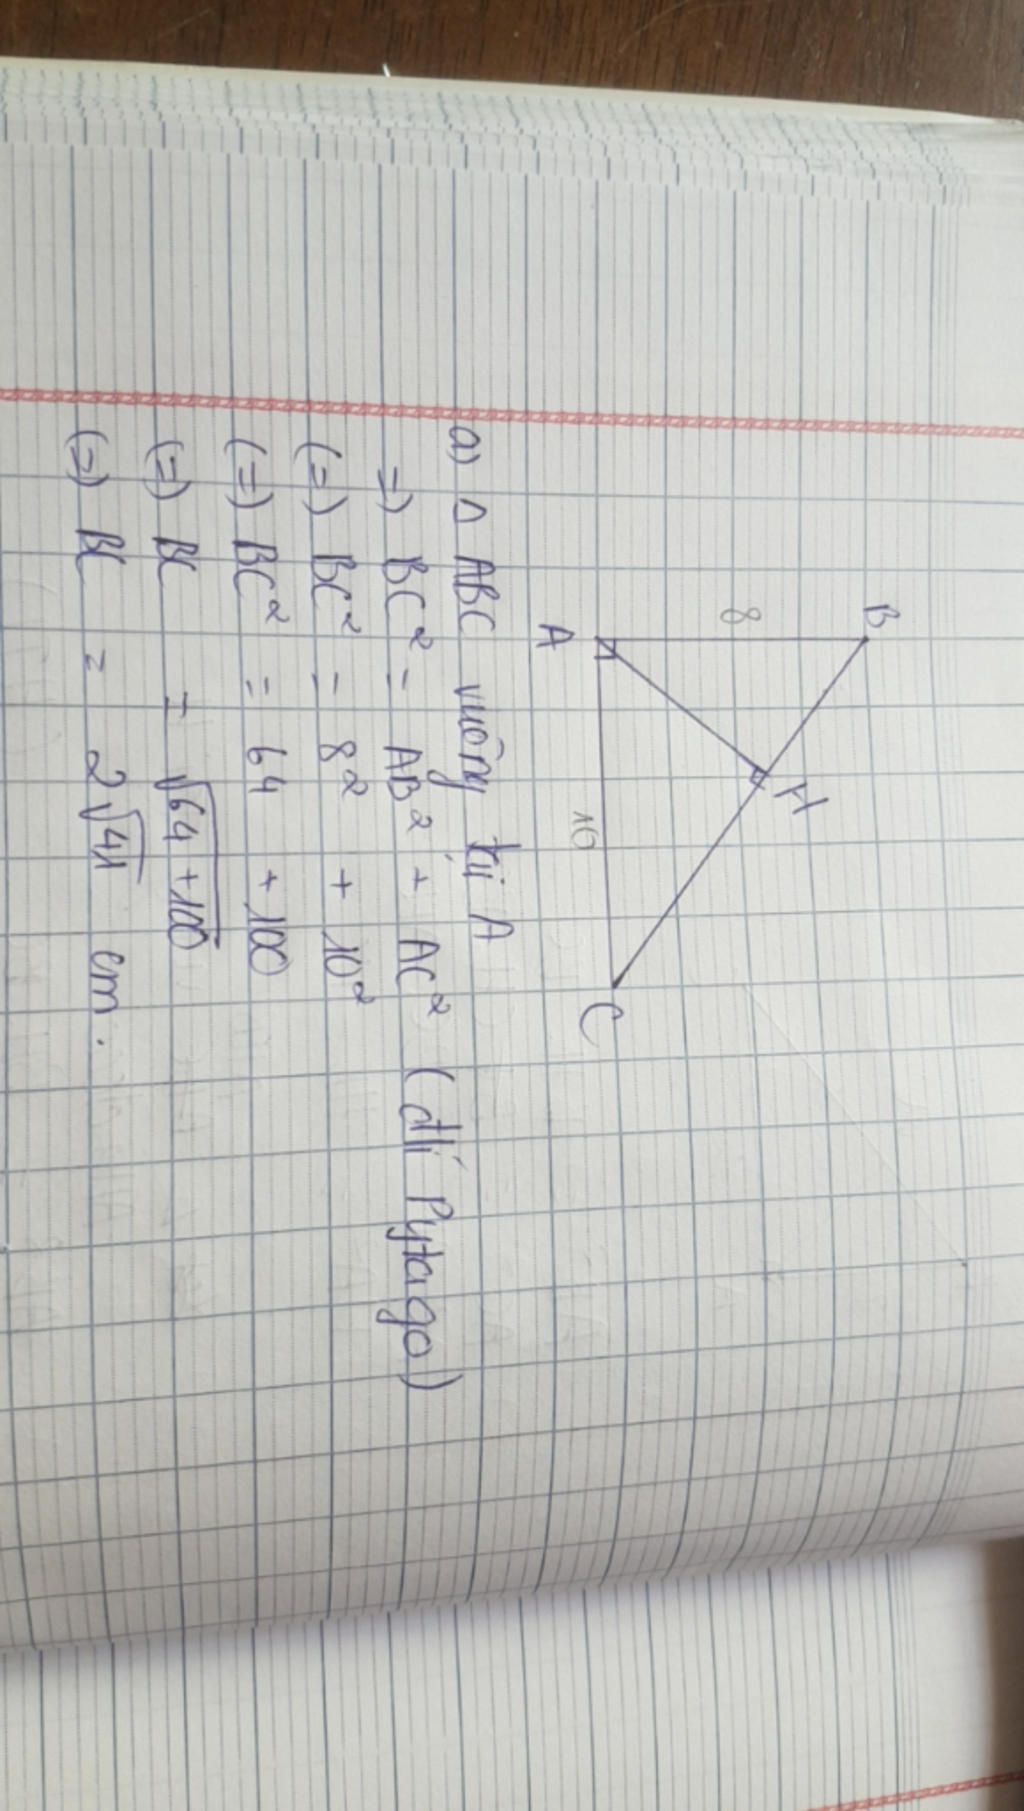 B
8
H
A
10
C
a) Δ ABC vuông tại A
=) BC² = AB² + AC² (đlí Pytago)
(=) BC² = 8² + 10²
(=) BC² = 64 + 100
(=) BC = √64 + 100
(=) BC = 2√41 cm.